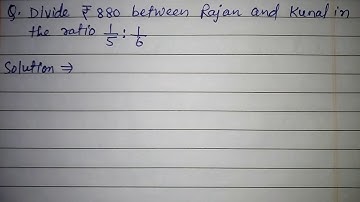 Q. Divide ₹ 880 between Rajan and Kunal in
the ratio 1/5 : 1/6
Solution ⇒